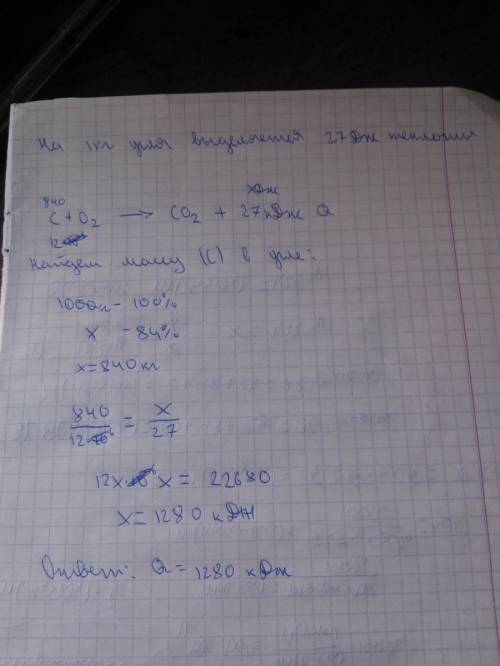 На 1кг угля выделяется 27 Дж теплоты
840 xДж
C + O₂ → CO₂ + 27кДж Q
12
Найдем массу (C) в угле:
1000кг - 100%
x - 84%
x = 840 кг
840/12 = x/27
12x x = 22680
x = 1280 кДж
Ответ: Q = 1280 кДж